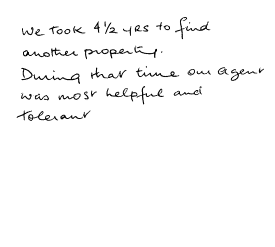 We took 4 1/2 yrs to find
another property.
During that time our agent
was most helpful and
tolerant